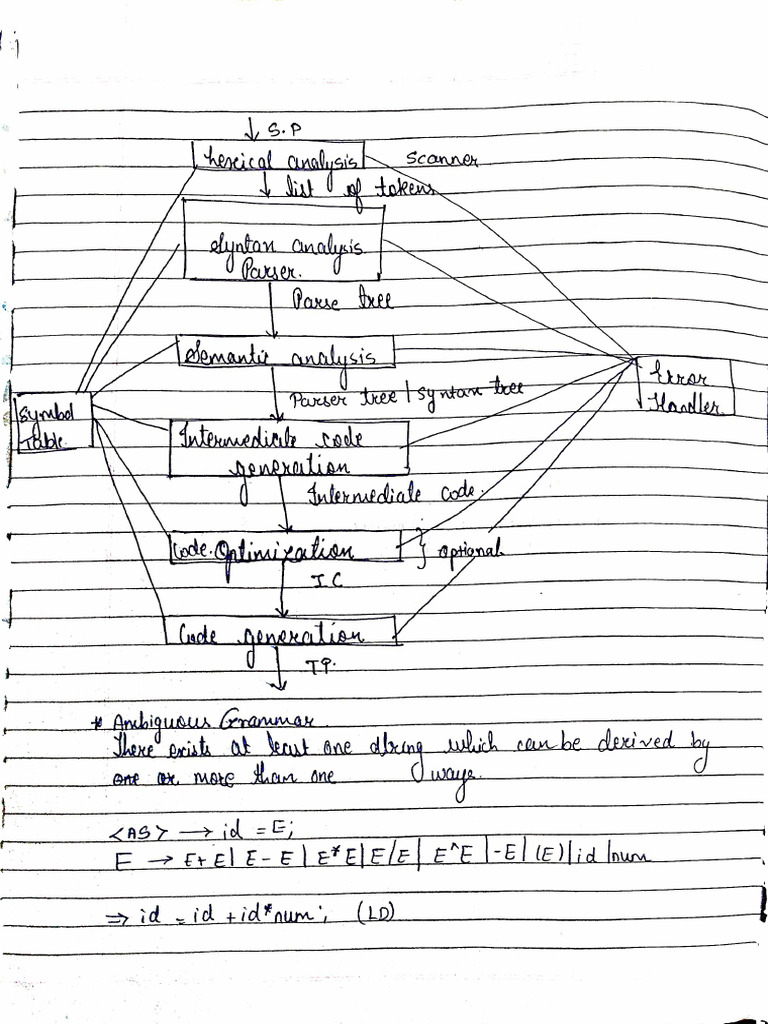 S.P
Lexical analysis Scanner
list of tokens
Syntax analysis
Parser.
Parse tree
Semantic analysis
Parser tree | Syntax tree
Symbol
Table
Error
Handler
Intermediate code
generation
Intermediate code.
Code. Optimization } optional
I.C
Code generation
T.P.
* Ambiguous Grammar.
There exists at least one string which can be derived by
one or more than one ways.
<AS> → id = E;
E → E+E | E-E | E*E | E/E | E^E | -E | (E) | id | num
⇒ id = id + id*num; (LD)